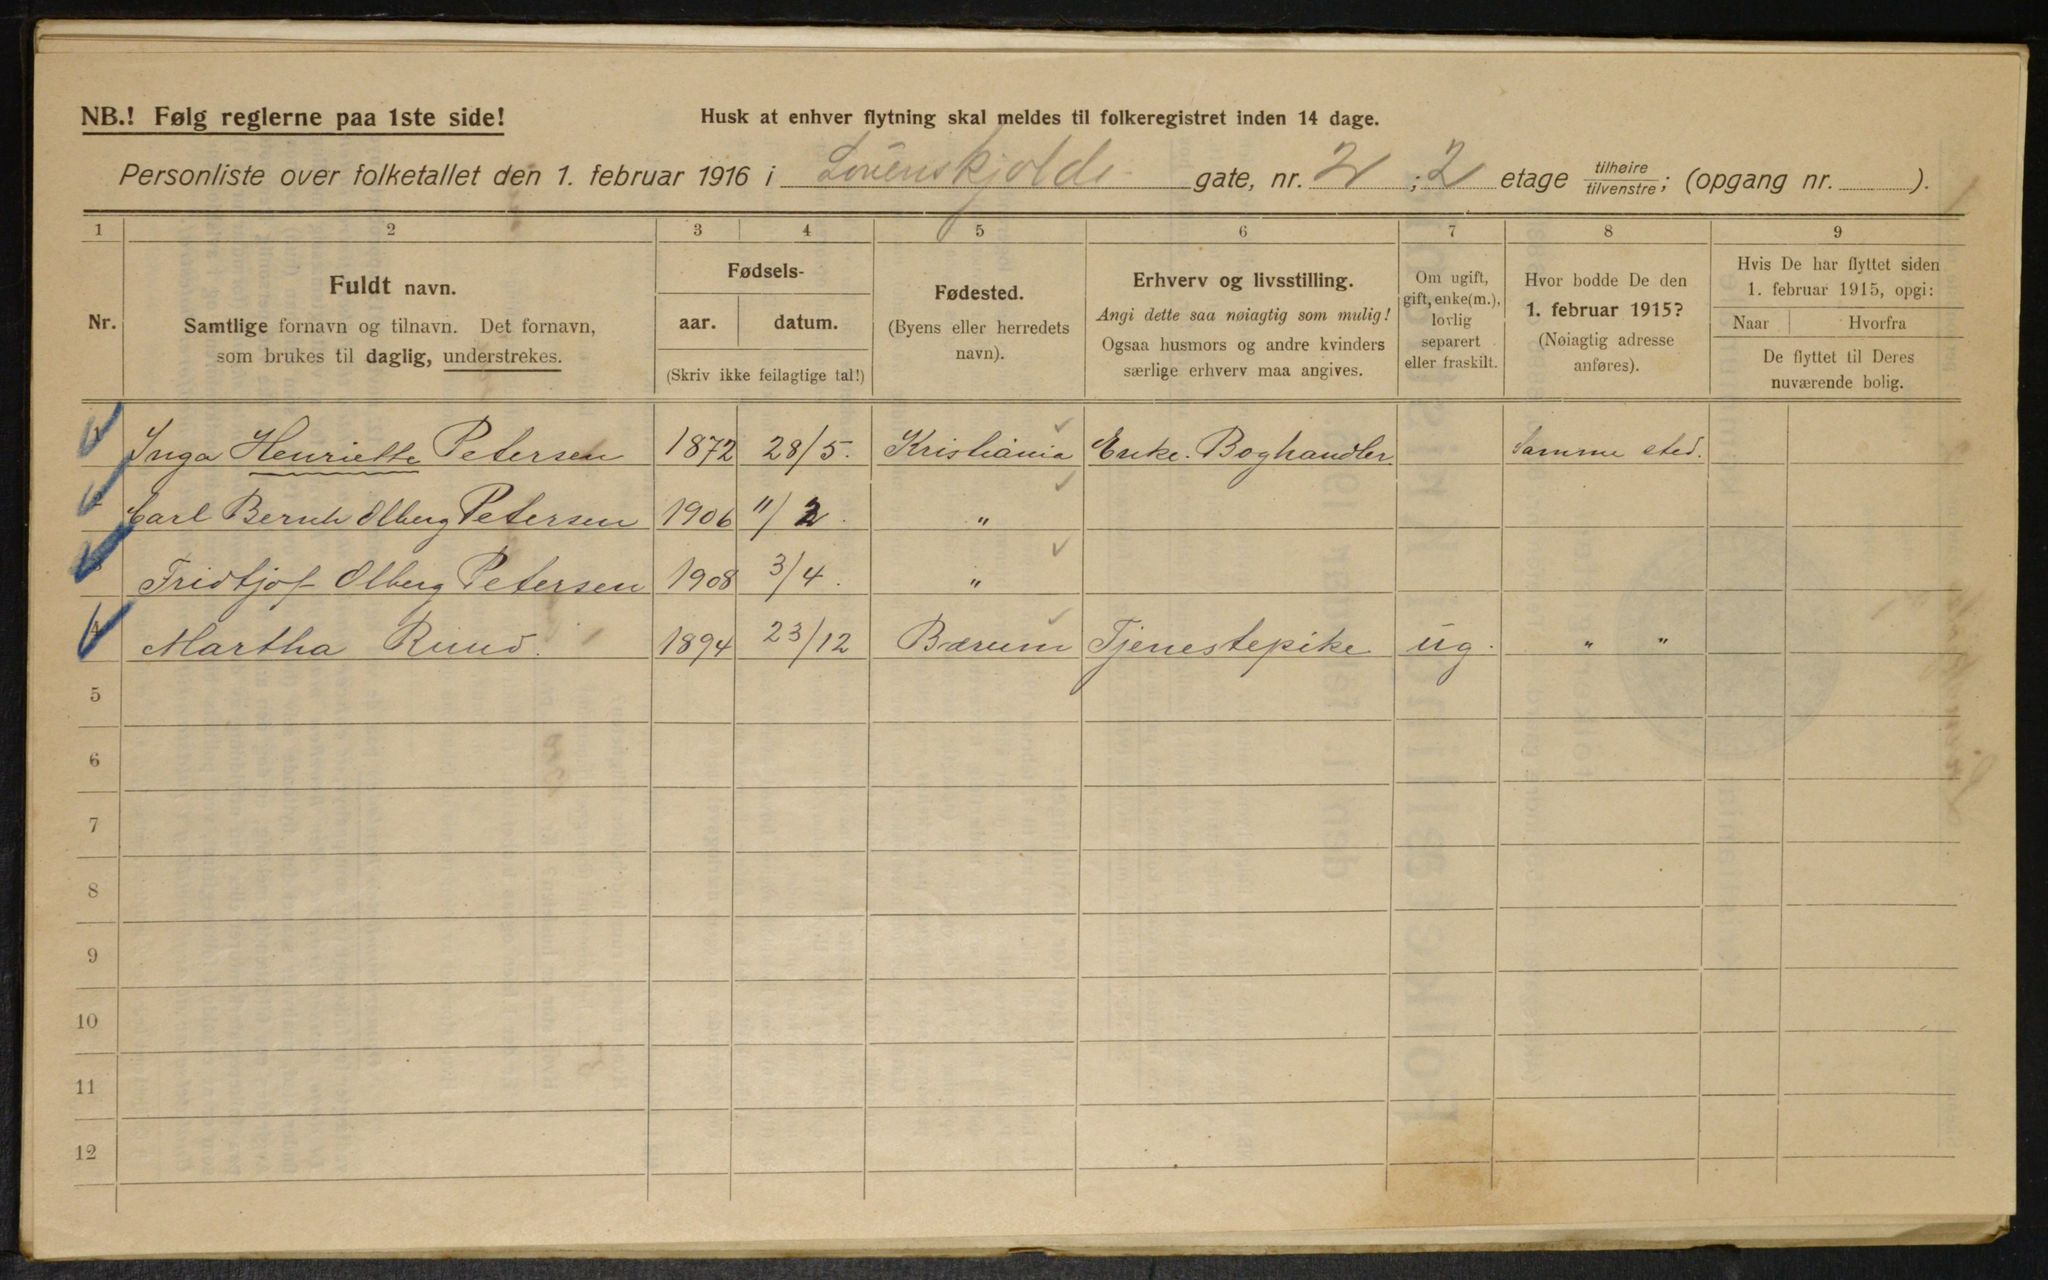 NB.! Følg reglerne paa 1ste side!
Husk at enhver flytning skal meldes til folkeregistret inden 14 dage.
Personliste over folketallet den 1. februar 1916 i Løvenskjolds gate, nr. 2 ; 2 etage tilhøire/tilvenstre; (opgang nr. ).
1 2 3 4 5 6 7 8 9
Nr.
Fuldt navn.
Samtlige fornavn og tilnavn. Det fornavn,
som brukes til daglig, understrekes.
Fødsels-
aar. datum.
(Skriv ikke feilagtige tal!)
Fødested.
(Byens eller herredets
navn).
Erhverv og livsstilling.
Angi dette saa nøiagtig som mulig!
Ogsaa husmors og andre kvinders
særlige erhverv maa angives.
Om ugift,
gift, enke(m.),
lovlig
separert
eller fraskilt.
Hvor bodde De den
1. februar 1915?
(Nøiagtig adresse
anføres).
Hvis De har flyttet siden
1. februar 1915, opgi:
Naar Hvorfra
De flyttet til Deres
nuværende bolig.
1 Inga Henriette Petersen 1872 28/5. Kristiania Enke. Boghandler Samme sted.
2 Carl Bernh Olberg Petersen 1906 11/2. "
3 Fridtjof Olberg Petersen 1908 3/4. "
4 Martha Ruud. 1894 23/12 Bærum Tjenestepike ug. " "
5
6
7
8
9
10
11
12